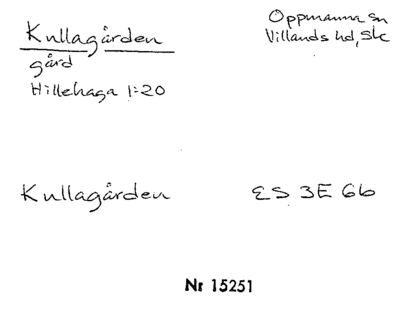 Kullagården
gård
Hillehaga 1:20
Oppmanna sn
Villands hd, Sk
Kullagården
ES 3E 6b
Nr 15251